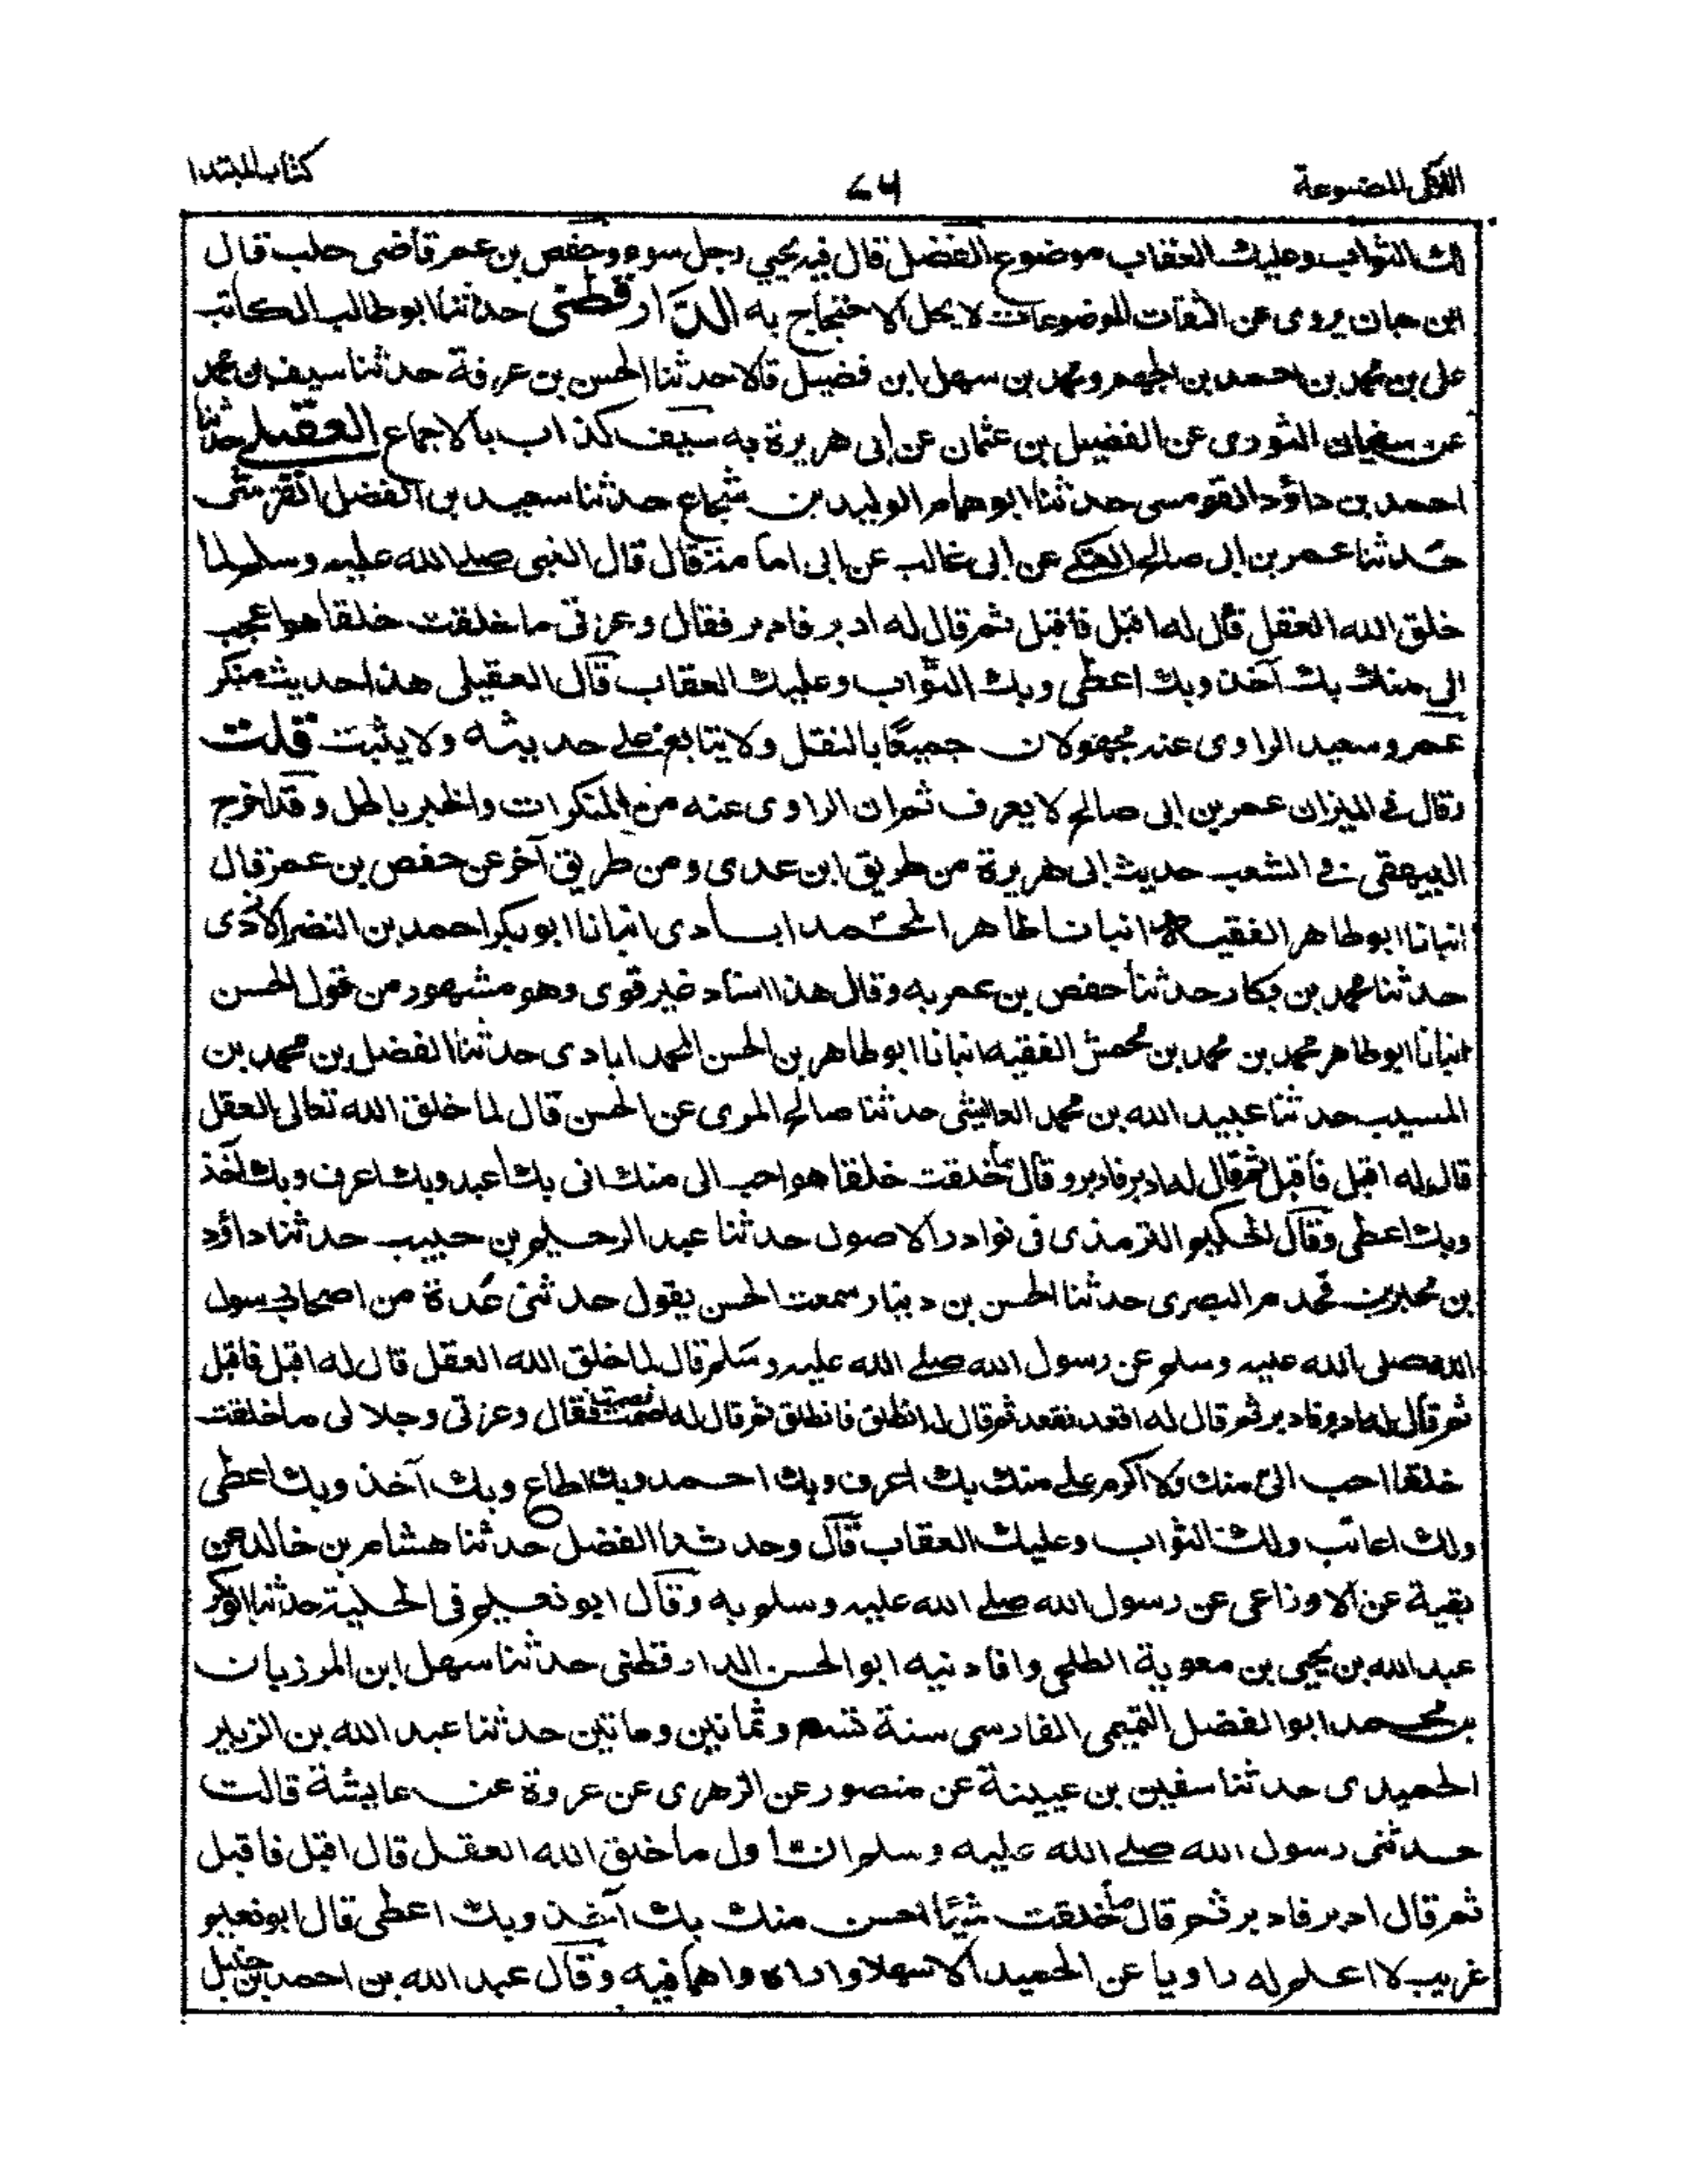 اللآلى المصنوعة
٦٧
كتاب المبتدا
لك الثواب وعليك العقاب موضوع الفضل قال فيه يحيى رجل سوء وحفص بن عمر قاضى حلب قال
ابن حبان يروى عن الثقات الموضوعات لا يحل الاحتجاج به الدارقطنى حدثنا ابو طالب الكاتب
على بن محمد بن احمد بن الجهم ومحمد بن سهل ابن فضيل قالا حدثنا الحسن بن عرفة حدثنا سيف بن محمد
عن سفيان الثورى عن الفضيل بن عثمان عن ابى هريرة به سيف كذاب بالاجماع العقيلى حدثنا
احمد بن داؤد القومسى حدثنا ابو همام الوليد بن شجاع حدثنا سعيد بن الفضل القرشى
حدثنا عمر بن ابى صالح العتكى عن ابى غالب عن ابى امامة قال قال النبى صلے الله عليه وسلم لما
خلق الله العقل قال له اقبل فاقبل ثم قال له ادبر فادبر فقال وعزتى ما خلقت خلقا هو اعجب
الى منك بك آخذ وبك اعطى وبك الثواب وعليك العقاب قال العقيلى هذا حديث منكر
عمر وسعيد الراوى عنه مجهولان جميعًا بالنقل ولا يتابع على حديثه ولا يثبت قلت
وقال فى الميزان عمر بن ابى صالح لا يعرف ثم ان الراوى عنه من المنكرات والخبر باطل وقد اخرج
البيهقى فى الشعب حديث ابى هريرة من طريق ابن عدى ومن طريق آخر عن حفص بن عمر فقال
انبانا ابو طاهر الفقيه انبانا طاهر المحمدابادى انبانا ابو بكر احمد بن النضر الازدى
حدثنا محمد بن بكار حدثنا حفص بن عمر به وقال هذا اسناد غير قوى وهو مشهور من قول الحسن
انبانا ابو طاهر محمد بن محمد بن محمش الفقيه انبانا ابو طاهر بن الحسن المحمدابادى حدثنا الفضل بن محمد بن
المسيب حدثنا عبيد الله بن محمد العايشى حدثنا صالح المرى عن الحسن قال لما خلق الله تعالى العقل
قال له اقبل فاقبل ثم قال له ادبر فادبر وقال ما خلقت خلقا هو احب الى منك انى بك اعبد وبك اعرف وبك آخذ
وبك اعطى وقال الحكيم الترمذى فى نوادر الاصول حدثنا عبد الرحيم بن حبيب حدثنا داؤد
بن محبر بن قحذم البصرى حدثنا الحسن بن دينار سمعت الحسن يقول حدثنى عدة من اصحاب رسول
الله صلى الله عليه وسلم عن رسول الله صلے الله عليه وسلم قال لما خلق الله العقل قال له اقبل فاقبل
ثم قال له ادبر فادبر ثم قال له اقعد فقعد ثم قال له انطلق فانطلق ثم قال له اصمت فصمت فقال وعزتى وجلالى ما خلقت
خلقا احب الى منك ولا اكرم على منك بك اعرف وبك احمد وبك اطاع وبك آخذ وبك اعطى
ولك اعاتب ولك الثواب وعليك العقاب قال وحدثنا الفضل حدثنا هشام بن خالد عن
بقية عن الاوزاعى عن رسول الله صلے الله عليه وسلم به وقال ابو نعيم فى الحلية حدثنا ابو بكر
عبد الله بن يحيى بن معوية الطلحى وافادنيه ابو الحسن الدارقطنى حدثنا سهل ابن المرزبان
بن محمد ابو الفضل التميمى الفارسى سنة تسع وثمانين ومائتين حدثنا عبد الله بن الزبير
الحميدى حدثنا سفين بن عيينة عن منصور عن الزهرى عن عروة عن عايشة قالت
حدثنى رسول الله صلے الله عليه وسلم ان اول ما خلق الله العقل قال اقبل فاقبل
ثم قال ادبر فادبر ثم قال ما خلقت شيئًا احسن منك بك آخذ وبك اعطى قال ابو نعيم
غريب لا اعلم له راويا عن الحميد الا سهلا واراه واهما فيه وقال عبد الله بن احمد بن حنبل